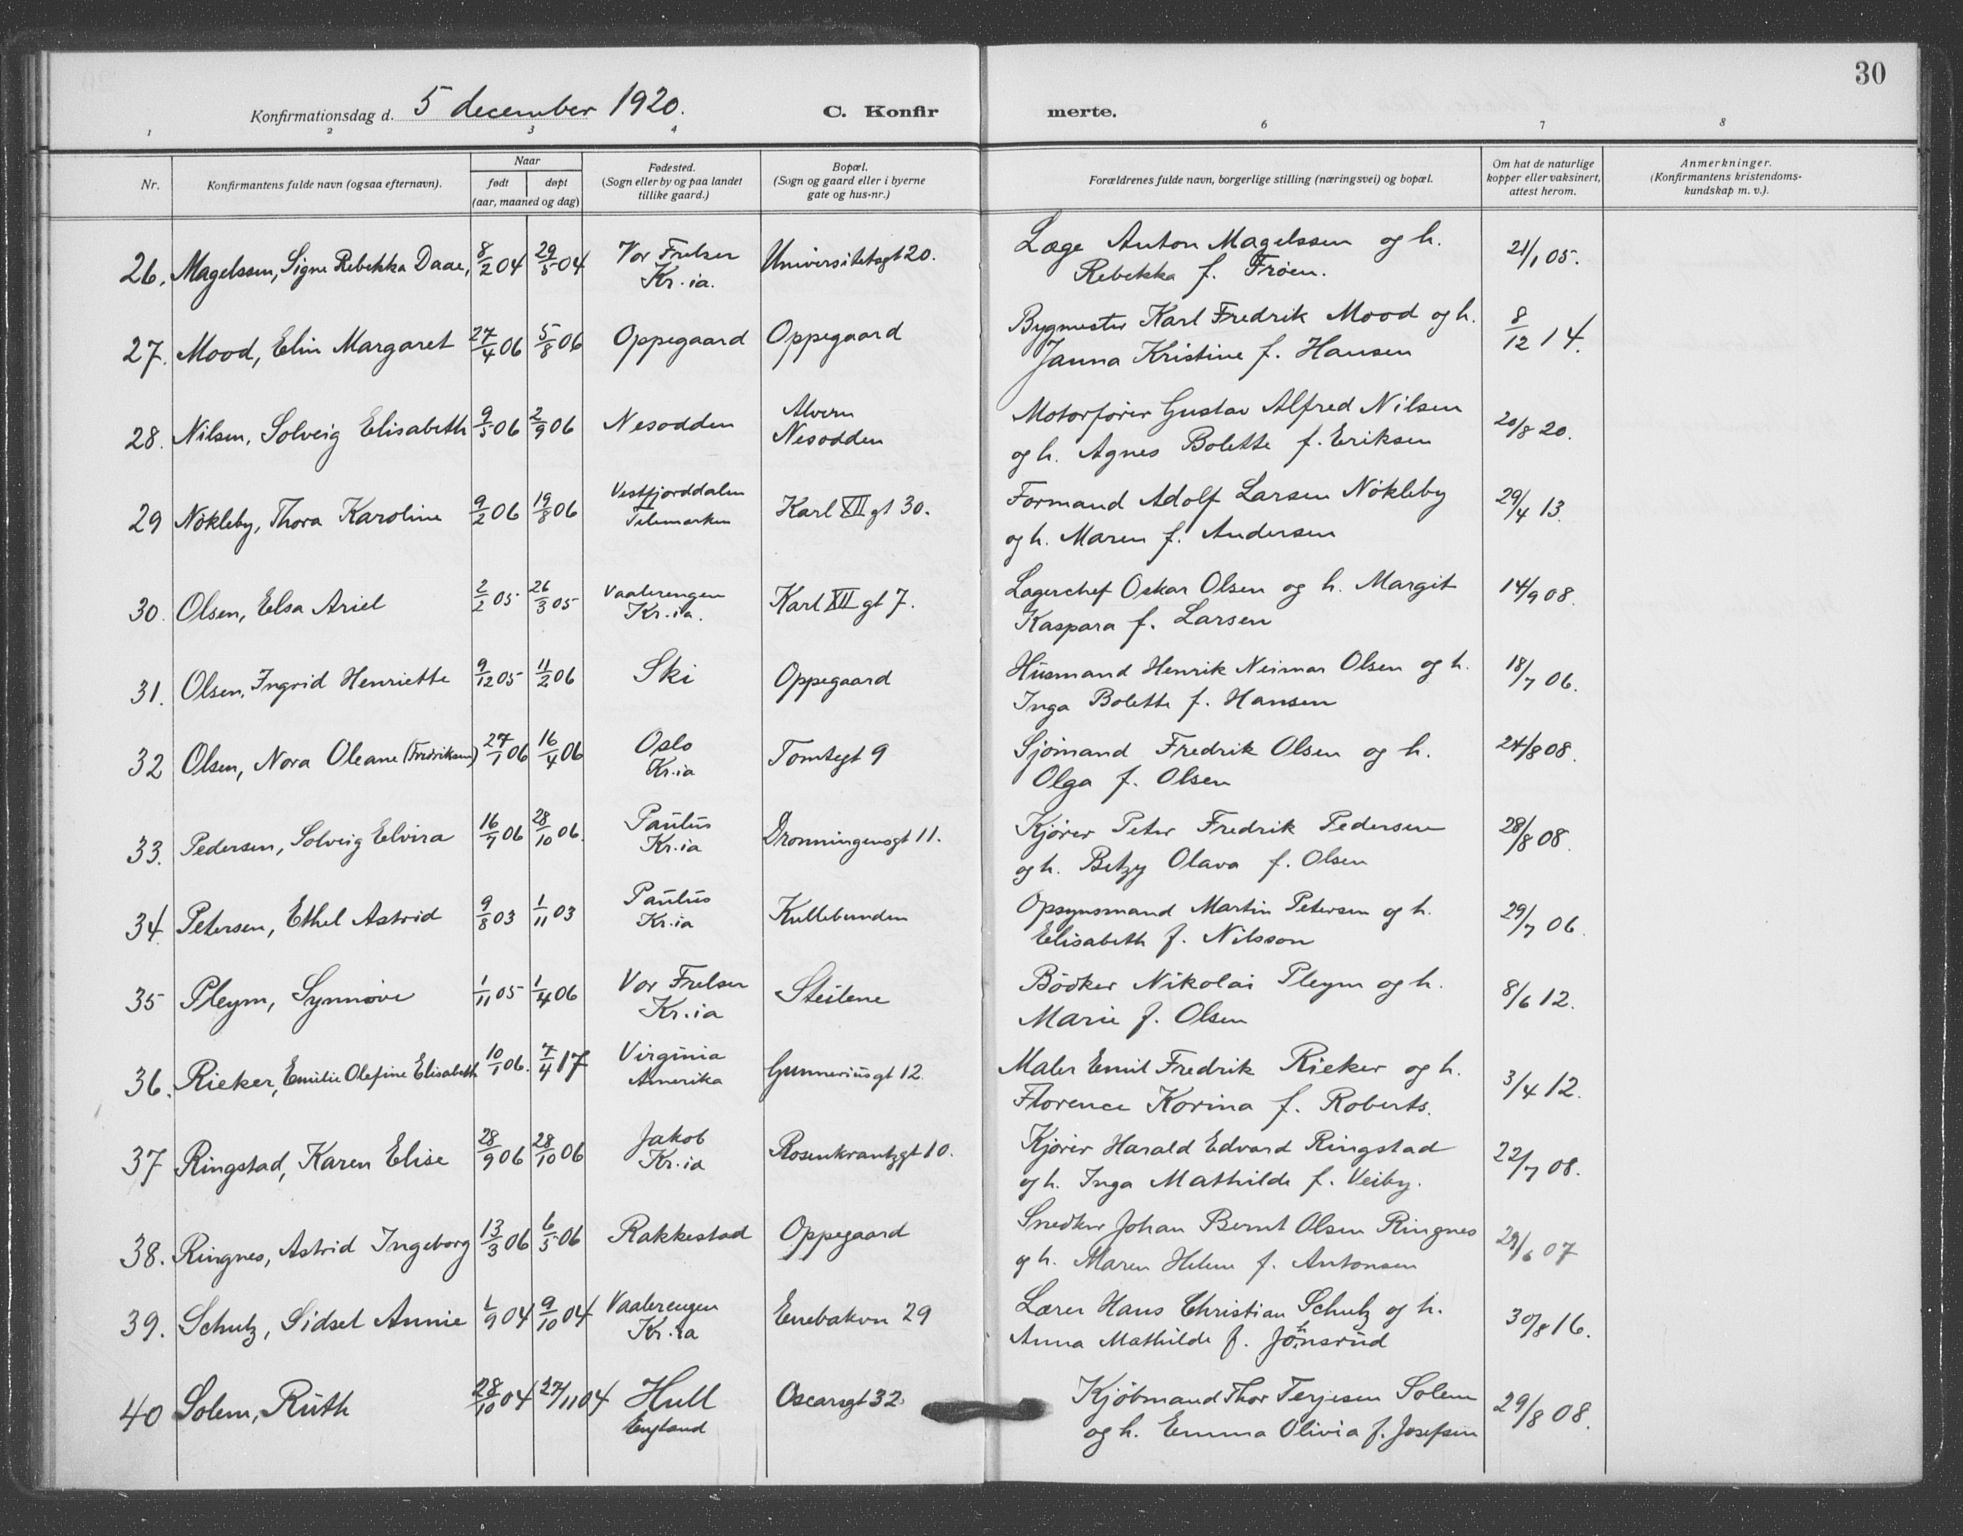 30
Konfirmationsdag d. 5 december 1920. C. Konfirmerte.
1 2 3 4 6 7 8
Nr. Konfirmantens fulde navn (ogsaa efternavn). Naar født døpt (aar, maaned og dag) Fødested. (Sogn eller by og paa landet tillike gaard.) Bopæl. (Sogn og gaard eller i byerne gate og hus-nr.) Forældrenes fulde navn, borgerlige stilling (næringsvei) og bopæl. Om hat de naturlige kopper eller vaksinert, attest herom. Anmerkninger. (Konfirmantens kristendoms-kundskap m. v.).
26. Magelssen, Signe Rebekka Daae, 8/2 04 29/5 04 Vor Frelser Kr.ia. Universitetsgt 20. Læge Anton Magelssen og h. 21/1 05.
Rebekka f. Frøen.
27. Mood, Elin Margaret 27/4 06 5/8 06 Oppegaard Oppegaard Bygmester Karl Fredrik Mood og h. 8/12 14.
Janna Kristine f. Hansen
28. Nilsen, Solveig Elisabeth 9/5 06 2/9 06 Nesodden Alvern Nesodden Motorfører Gustav Alfred Nilsen 20/8 20.
og h. Agnes Bolette f. Eriksen
29 Nökleby, Thora Karoline 9/2 06 19/8 06 Vestfjorddalen Telemarken Karl XII gt 30. Formand Adolf Larsen Nökleby 29/4 13.
og h. Maren f. Andersen
30. Olsen, Elsa Ariel 2/2 05 26/3 05 Vaalerengen Kr.ia. Karl XII gt 7. Lagerchef Oskar Olsen og h. Margit 14/9 08.
Kaspara f. Larsen
31. Olsen, Ingrid Henriette 9/12 05 11/2 06 Ski Oppegaard Husmand Henrik Neimar Olsen og h. 18/7 06.
Inga Bolette f. Hansen
32 Olsen, Nora Oleane (Fredriksen) 27/1 06 16/4 06 Oslo Kr.ia Tomtegt 9 Sjömand Fredrik Olsen og h. 24/8 08.
Olga f. Olsen
33. Pedersen, Solveig Elvira 16/7 06 28/10 06. Paulus Kr.ia Dronningensgt 11. Kjører Peter Fredrik Pedersen 28/8 08.
og h. Betzy Olava f. Olsen
34. Petersen, Ethel Astrid 9/8 03 1/11 03 Paulus Kr.ia Kullebunden Opsynsmand Martin Petersen og h. 29/7 06.
Elisabeth f. Nilsson
35 Pleym, Synnøve 1/11 05 1/4 06 Vor Frelser Kr.ia Steilene Bödker Nikolai Pleym og h. 8/6 12.
Marie f. Olsen
36. Rieker, Emilie Olefine Elisabeth 10/1 06. 7/4 17 Virginia Amerika Gunneriusgt 12. Maler Emil Fredrik Rieker og h. 3/4 12.
Florence Korina f. Roberts.
37 Ringstad, Karen Elise 28/9 06 28/10 06 Jakob Kr.ia Rosenkrantzgt 10. Kjører Harald Edvard Ringstad 22/7 08.
og h. Inga Mathilde f. Veiby.
38. Ringnes, Astrid Ingeborg 13/3 06 6/5 06 Rakkestad Oppegaard Snedker Johan Bernt Olsen Ringnes 29/6 07
og h. Maren Helene f. Antonsen
39. Schulz, Sidsel Annie 1/9 04 9/10 04 Vaalerengen Kr.ia Enebakvn 29 Lærer Hans Christian Schulz og h. 30/8 16.
Anna Mathilde f. Jöhnsrud
40 Solem, Ruth 28/10 04 27/11 04 Hull England Oscarsgt 32. Kjöbmand Thor Terjesen Solem 29/8 08.
og h. Emma Olivia f. Josefsen